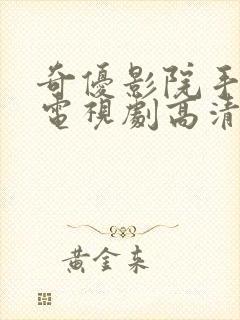 奇優影院手
電視劇高清
黃金來